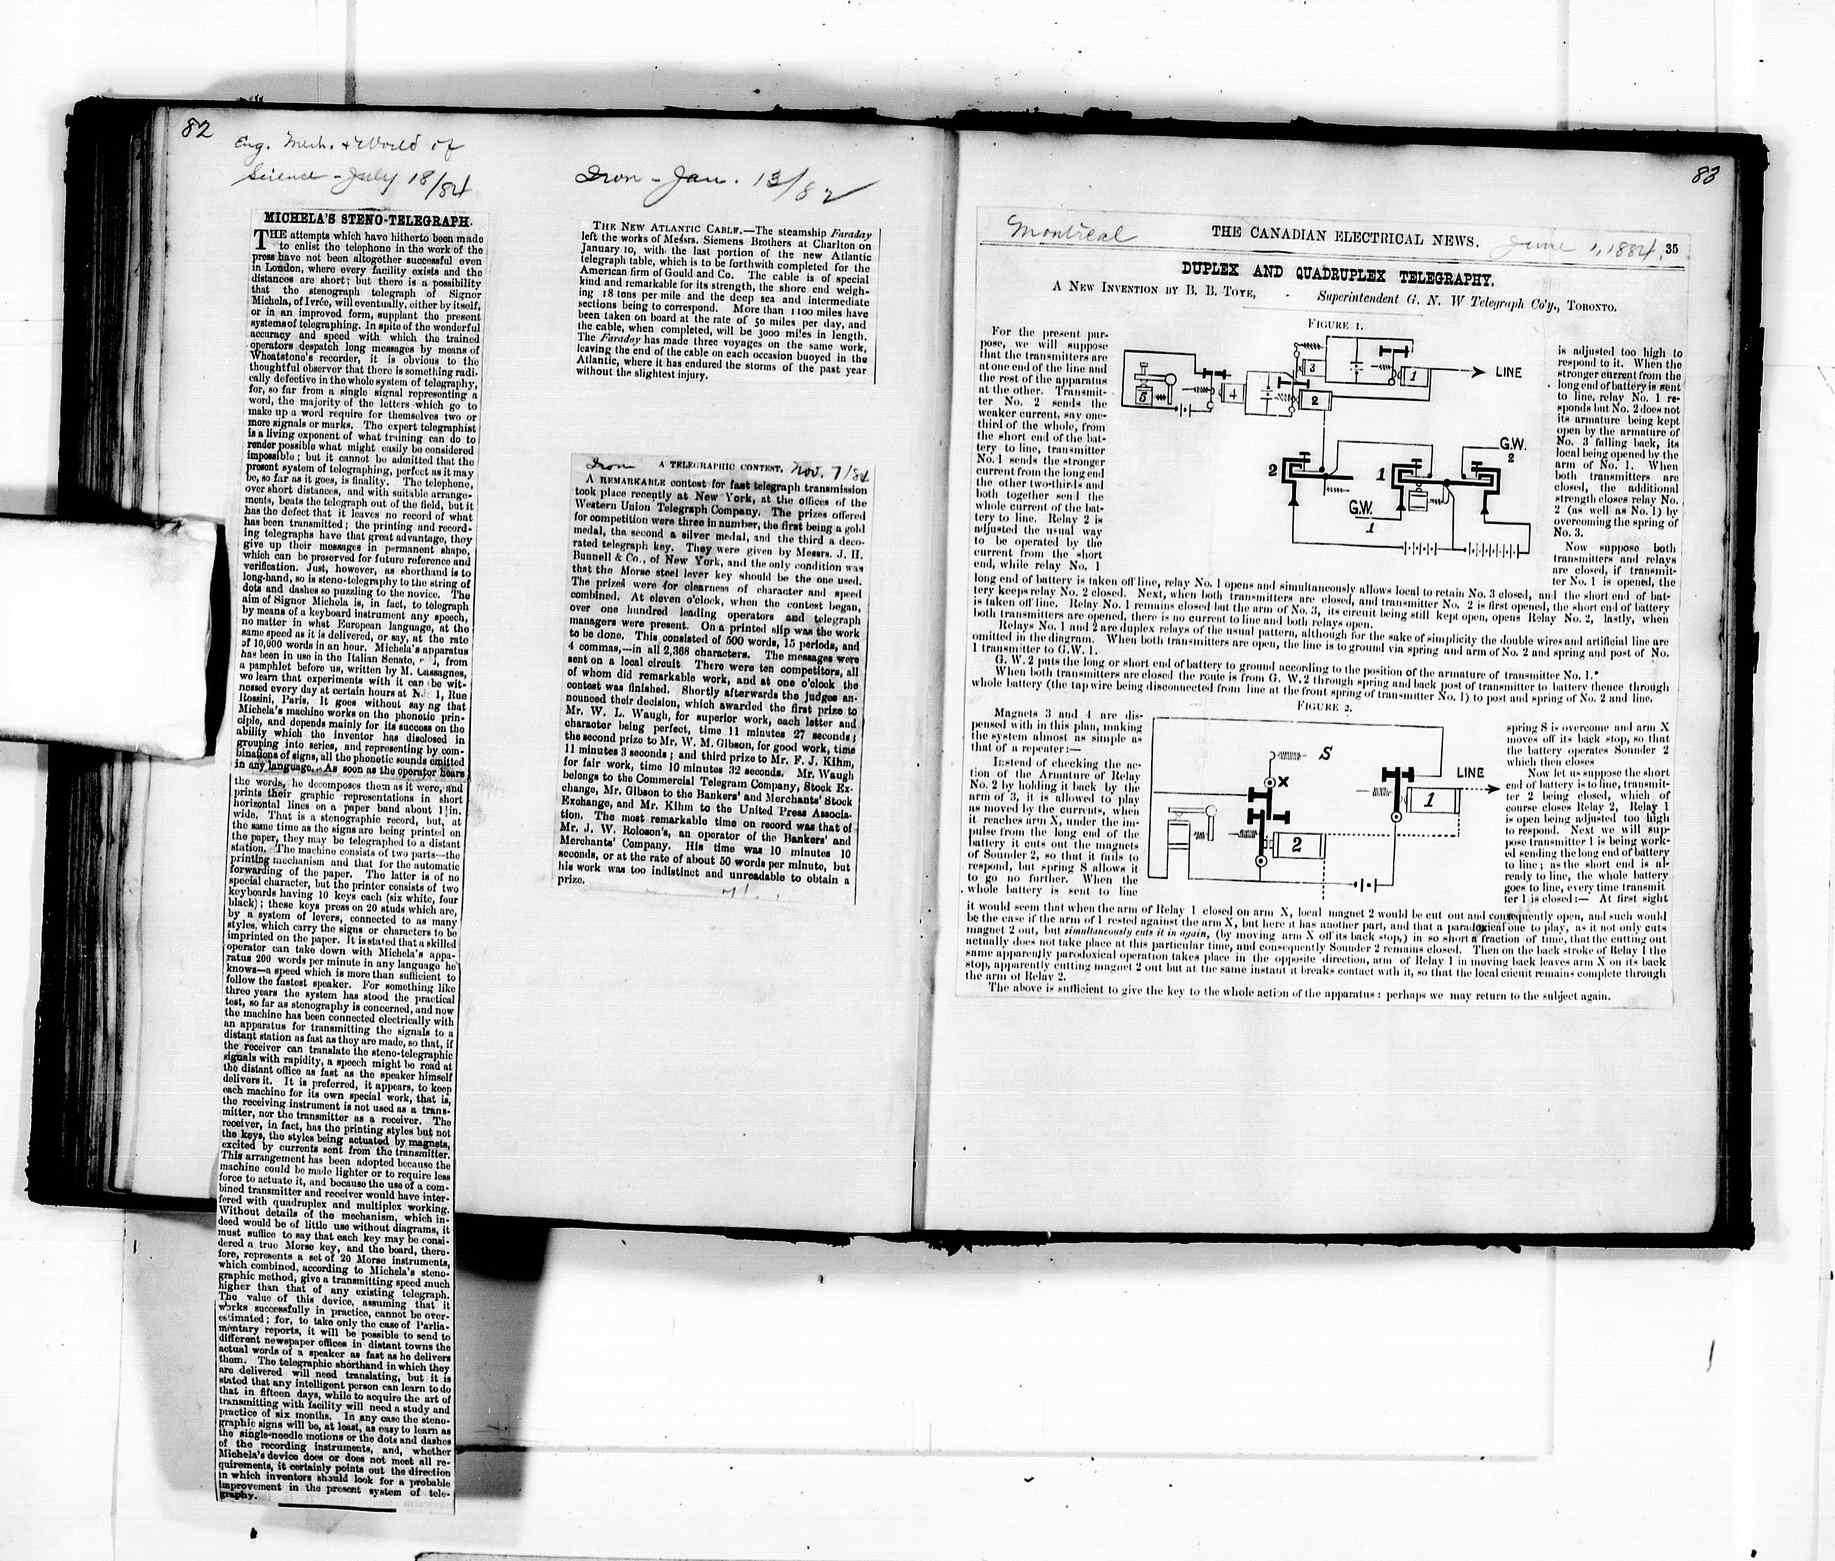 82
Eng. Mech. + World of
Science - July 18/84
MICHELA'S STENO-TELEGRAPH.
THE attempts which have hitherto been made
to enlist the telephone in the work of the
press have not been altogether successful even
in London, where every facility exists and the
distances are short; but there is a possibility
that the stenograph telegraph of Signor
Michela, of Ivrée, will eventually, either by itself,
or in an improved form, supplant the present
systems of telegraphing. In spite of the wonderful
accuracy and speed with which the trained
operators despatch long messages by means of
Wheatstone's recorder, it is obvious to the
thoughtful observer that there is something radi-
cally defective in the whole system of telegraphy,
for, so far from a single signal representing a
word, the majority of the letters which go to
make up a word require for themselves two or
more signals or marks. The expert telegraphist
is a living exponent of what training can do to
render possible what might easily be considered
impossible; but it cannot be admitted that the
present system of telegraphing, perfect as it may
be, so far as it goes, is finality. The telephone,
over short distances, and with suitable arrange-
ments, beats the telegraph out of the field, but it
has the defect that it leaves no record of what
has been transmitted; the printing and record-
ing telegraphs have that great advantage, they
give up their messages in permanent shape,
which can be preserved for future reference and
verification. Just, however, as shorthand is to
long-hand, so is steno-telegraphy to the string of
dots and dashes so puzzling to the novice. The
aim of Signor Michela is, in fact, to telegraph
by means of a keyboard instrument any speech,
no matter in what European language, at the
same speed as it is delivered, or say, at the rate
of 10,000 words in an hour. Michela's apparatus
has been in use in the Italian Senate, from
a pamphlet before us, written by M. Cassagnes,
we learn that experiments with it can be wit-
nessed every day at certain hours at No. 1, Rue
Rossini, Paris. It goes without saying that
Michela's machine works on the phonetic prin-
ciple, and depends mainly for its success on the
ability which the inventor has disclosed in
grouping into series, and representing by com-
binations of signs, all the phonetic sounds emitted
in any language. As soon as the operator hears
the words, he decomposes them as it were, and
prints their graphic representations in short
horizontal lines on a paper band about 1½in.
wide. That is a stenographic record, but, at
the same time as the signs are being printed on
the paper, they may be telegraphed to a distant
station. The machine consists of two parts—the
printing mechanism and that for the automatic
forwarding of the paper. The latter is of no
special character, but the printer consists of two
keyboards having 10 keys each (six white, four
black); these keys press on 20 studs which are,
by a system of levers, connected to as many
styles, which carry the signs or characters to be
imprinted on the paper. It is stated that a skilled
operator can take down with Michela's appa-
ratus 200 words per minute in any language he
knows—a speed which is more than sufficient to
follow the fastest speaker. For something like
three years the system has stood the practical
test, so far as stenography is concerned, and now
the machine has been connected electrically with
an apparatus for transmitting the signals to a
distant station as fast as they are made, so that, if
the receiver can translate the steno-telegraphic
signals with rapidity, a speech might be read at
the distant office as fast as the speaker himself
delivers it. It is preferred, it appears, to keep
each machine for its own special work, that is,
the receiving instrument is not used as a trans-
mitter, nor the transmitter as a receiver. The
receiver, in fact, has the printing styles but not
the keys, the styles being actuated by magnets,
excited by currents sent from the transmitter.
This arrangement has been adopted because the
machine could be made lighter or to require less
force to actuate it, and because the use of a com-
bined transmitter and receiver would have inter-
fered with quadruplex and multiplex working.
Without details of the mechanism, which in-
deed would be of little use without diagrams, it
must suffice to say that each key may be consi-
dered a true Morse key, and the board, there-
fore, represents a set of 20 Morse instruments,
which combined, according to Michela's steno-
graphic method, give a transmitting speed much
higher than that of any existing telegraph.
The value of this device, assuming that it
works successfully in practice, cannot be over-
estimated; for, to take only the case of Parlia-
mentary reports, it will be possible to send to
different newspaper offices in distant towns the
actual words of a speaker as fast as he delivers
them. The telegraphic shorthand in which they
are delivered will need translating, but it is
stated that any intelligent person can learn to do
that in fifteen days, while to acquire the art of
transmitting with facility will need a study and
practice of six months. In any case the steno-
graphic signs will be, at least, as easy to learn as
the single-needle motions or the dots and dashes
of the recording instruments, and, whether
Michela's device does or does not meet all re-
quirements, it certainly points out the direction
in which inventors should look for a probable
improvement in the present system of tele-
graphy.
Iron - Jan. 13/82
THE NEW ATLANTIC CABLE.—The steamship Faraday
left the works of Messrs. Siemens Brothers at Charlton on
January 10, with the last portion of the new Atlantic
telegraph table, which is to be forthwith completed for the
American firm of Gould and Co. The cable is of special
kind and remarkable for its strength, the shore end weigh-
ing 18 tons per mile and the deep sea and intermediate
sections being to correspond. More than 1100 miles have
been taken on board at the rate of 50 miles per day, and
the cable, when completed, will be 3000 miles in length.
The Faraday has made three voyages on the same work,
leaving the end of the cable on each occasion buoyed in the
Atlantic, where it has endured the storms of the past year
without the slightest injury.
Iron A TELEGRAPHIC CONTEST. Nov. 7/84
A REMARKABLE contest for fast telegraph transmission
took place recently at New York, at the offices of the
Western Union Telegraph Company. The prizes offered
for competition were three in number, the first being a gold
medal, the second a silver medal, and the third a deco-
rated telegraph key. They were given by Messrs. J. H.
Bunnell & Co., of New York, and the only condition was
that the Morse steel lever key should be the one used.
The prizes were for clearness of character and speed
combined. At eleven o'clock, when the contest began,
over one hundred leading operators and telegraph
managers were present. On a printed slip was the work
to be done. This consisted of 500 words, 15 periods, and
4 commas,—in all 2,368 characters. The messages were
sent on a local circuit There were ten competitors, all
of whom did remarkable work, and at one o'clock the
contest was finished. Shortly afterwards the judges an-
nounced their decision, which awarded the first prize to
Mr. W. L. Waugh, for superior work, each letter and
character being perfect, time 11 minutes 27 seconds;
the second prize to Mr. W. M. Gibson, for good work, time
11 minutes 3 seconds; and third prize to Mr. F. J. Kihm,
for fair work, time 10 minutes 32 seconds. Mr. Waugh
belongs to the Commercial Telegram Company, Stock Ex-
change, Mr. Gibson to the Bankers' and Merchants' Stock
Exchange, and Mr. Kihm to the United Press Associa-
tion. The most remarkable time on record was that of
Mr. J. W. Roloson's, an operator of the Bankers' and
Merchants' Company. His time was 10 minutes 10
seconds, or at the rate of about 50 words per minute, but
his work was too indistinct and unreadable to obtain a
prize.
83
Montreal THE CANADIAN ELECTRICAL NEWS. June 1, 1884. 35
DUPLEX AND QUADRUPLEX TELEGRAPHY.
A NEW INVENTION BY B. B. TOYE, - Superintendent G. N. W Telegraph Co'y., TORONTO.
FIGURE 1.
For the present pur-
pose, we will suppose
that the transmitters are
at one end of the line and
the rest of the apparatus
at the other. Transmit-
ter No. 2 sends the
weaker current, say one-
third of the whole, from
the short end of the bat-
tery to line, transmitter
No. 1 sends the stronger
current from the long end
the other two-thirds and
both together send the
whole current of the bat-
tery to line. Relay 2 is
adjusted the usual way
to be operated by the
current from the short
end, while relay No. 1
5
4
3
2
1
LINE
2
1
G.W.
2
G.W.
1
is adjusted too high to
respond to it. When the
stronger current from the
long end of battery is sent
to line, relay No. 1 re-
sponds but No. 2 does not
its armature being kept
open by the armature of
No. 3 falling back, its
local being opened by the
arm of No. 1. When
both transmitters are
closed, the additional
strength closes relay No.
2 (as well as No. 1) by
overcoming the spring of
No. 3.
Now suppose both
transmitters and relays
are closed, if transmit-
ter No. 1 is opened, the
long end of battery is taken off line, relay No. 1 opens and simultaneously allows local to retain No. 3 closed, and the short end of bat-
tery keeps relay No. 2 closed. Next, when both transmitters are closed, and transmitter No. 2 is first opened, the short end of battery
is taken off line. Relay No. 1 remains closed but the arm of No. 3, its circuit being still kept open, opens Relay No. 2, lastly, when
both transmitters are opened, there is no current to line and both relays open.
Relays No. 1 and 2 are duplex relays of the usual pattern, although for the sake of simplicity the double wires and artificial line are
omitted in the diagram. When both transmitters are open, the line is to ground via spring and arm of No. 2 and spring and post of No.
1 transmitter to G.W. 1.
G. W. 2 puts the long or short end of battery to ground according to the position of the armature of transmitter No. 1.
When both transmitters are closed the route is from G. W. 2 through spring and back post of transmitter to battery thence through
whole battery (the tap wire being disconnected from line at the front spring of transmitter No. 1) to post and spring of No. 2 and line.
FIGURE 2.
Magnets 3 and 4 are dis-
pensed with in this plan, making
the system almost as simple as
that of a repeater:—
Instead of checking the ac-
tion of the Armature of Relay
No. 2 by holding it back by the
arm of 3, it is allowed to play
as moved by the currents, when
it reaches arm X, under the im-
pulse from the long end of the
battery it cuts out the magnets
of Sounder 2, so that it fails to
respond, but spring S allows it
to go no further. When the
whole battery is sent to line
S
X
2
1
LINE
spring S is overcome and arm X
moves off its back stop, so that
the battery operates Sounder 2
which then closes
Now let us suppose the short
end of battery is to line, transmit-
ter 2 being closed, which of
course closes Relay 2, Relay 1
is open being adjusted too high
to respond. Next we will sup-
pose transmitter 1 is being work-
ed sending the long end of battery
to line; as the short end is al-
ready to line, the whole battery
goes to line, every time transmit
ter 1 is closed:— At first sight
it would seem that when the arm of Relay 1 closed on arm X, local magnet 2 would be cut out and consequently open, and such would
be the case if the arm of 1 rested against the arm X, but here it has another part, and that a paradoxical one to play, as it not only cuts
magnet 2 out, but simultaneously cuts it in again, (by moving arm X off its back stop,) in so short a fraction of time, that the cutting out
actually does not take place at this particular time, and consequently Sounder 2 remains closed. Then on the back stroke of Relay 1 the
same apparently parodoxical operation takes place in the opposite direction, arm of Relay 1 in moving back leaves arm X on its back
stop, apparently cutting magnet 2 out but at the same instant it breaks contact with it, so that the local circuit remains complete through
the arm of Relay 2.
The above is sufficient to give the key to the whole action of the apparatus: perhaps we may return to the subject again.